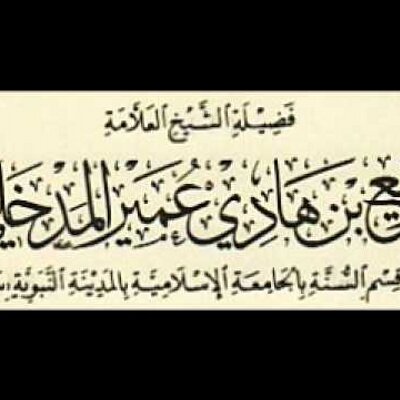 فَضِيْلَةِ الشَّيْخِ العَلَّامَةِ
بْنِ هَادِيْ عُمَيْرِ المَدْخَلِي
قِسْمِ السُّنَّةِ بِالجَامِعَةِ الإِسْلَامِيَّةِ بِالمَدِيْنَةِ النَّبَوِيَّةِ